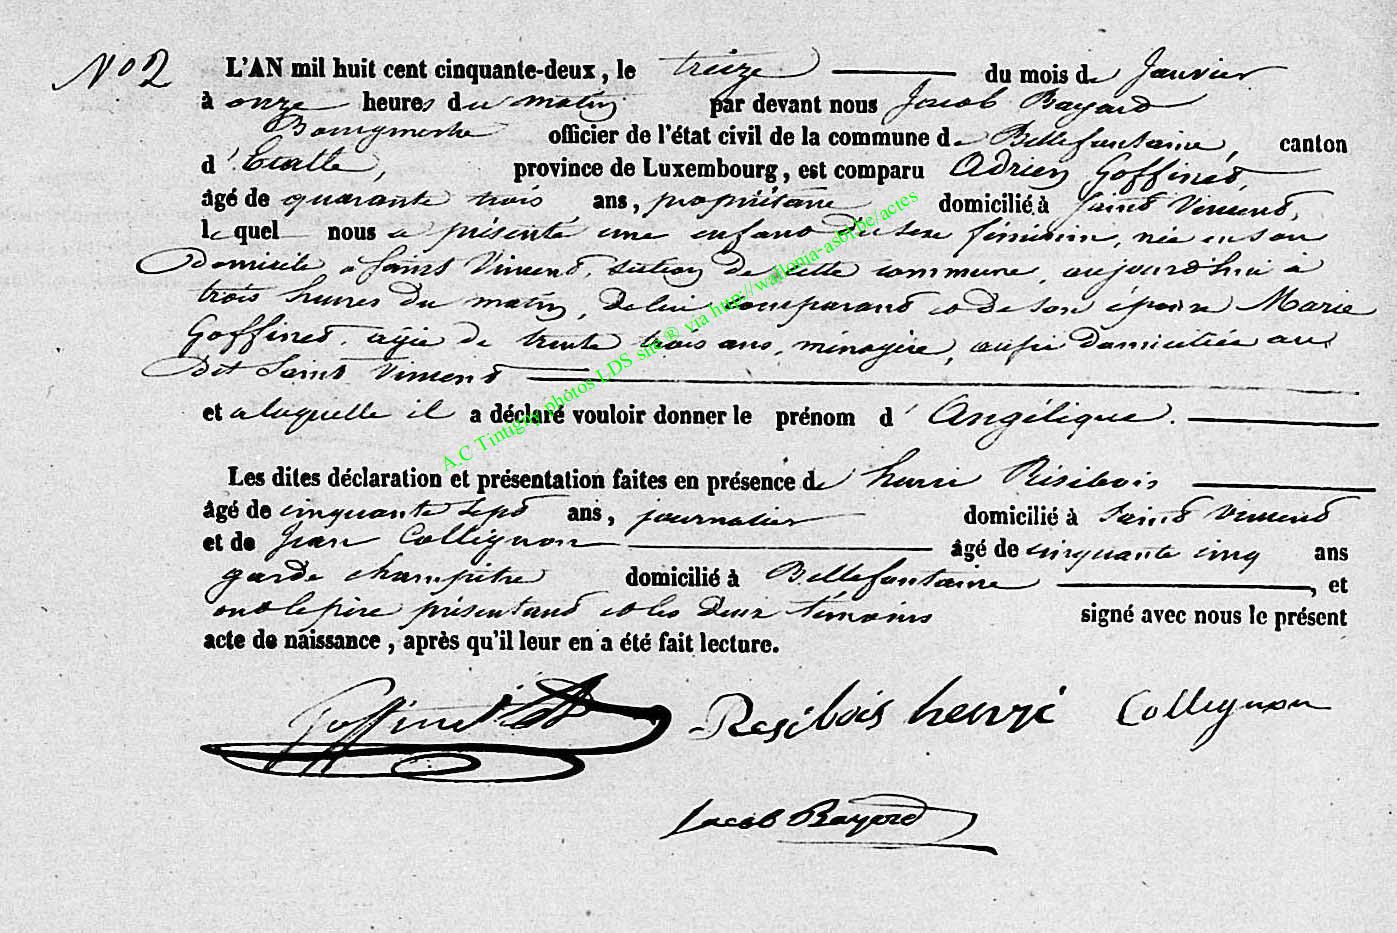 No 2 L'AN mil huit cent cinquante-deux, le treize du mois de Janvier
à onze heures du matin par devant nous Jacob Bayard
Bourgmestre officier de l'état civil de la commune de Bellefontaine, canton
d'Etalle, province de Luxembourg, est comparu Adrien Goffinet,
âgé de quarante trois ans, propriétaire domicilié à Saint Vincent,
lequel nous a présenté une enfant du sexe féminin, née en son
domicile à Saint Vincent, section de cette commune, aujourd'hui à
trois heures du matin, de lui comparant et de son épouse Marie
Goffinet, agée de trente trois ans, ménagère, aussi domiciliée au
dit Saint Vincent
et a laquelle il a déclaré vouloir donner le prénom d'Angélique.
Les dites déclaration et présentation faites en présence de henri Résibois
âgé de cinquante sept ans, journalier domicilié à Saint Vincent
et de Jean Collignon âgé de cinquante cinq ans
garde champêtre domicilié à Bellefontaine, et
ont le père présentant et les deux témoins signé avec nous le présent
acte de naissance, après qu'il leur en a été fait lecture.
Goffinet Resibois henri Collignon
Jacob Bayard
A.C Tintigny photos LDS site ® via http://wallonia-asbl.be/actes